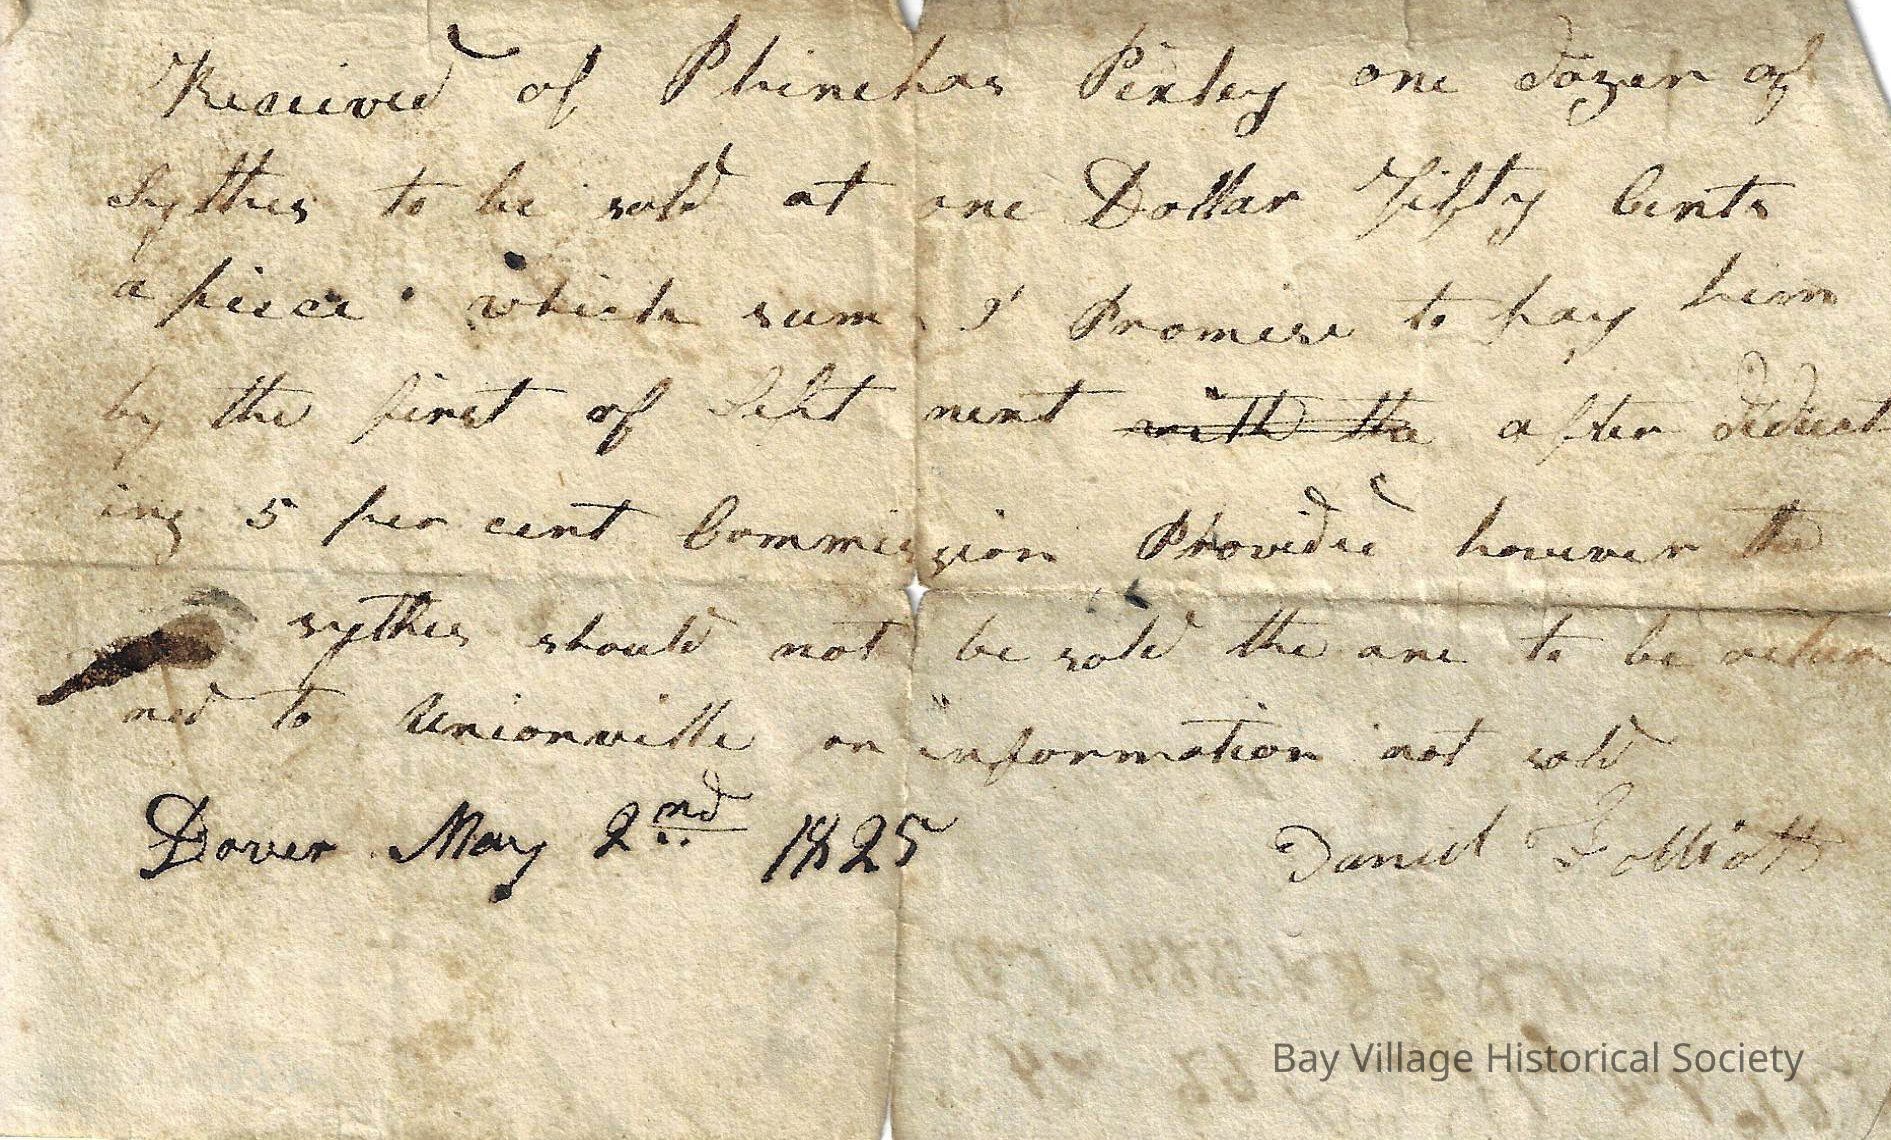 Received of Phinehas Pixley one dozen of
Sythes to be sold at one Dollar Fifty Cents
a piece which sum I Promise to pay him
by the first of Sept next with the after deduct
ing 5 per cent Commission Provided however the
sythes should not be sold the are to be retur
ned to Unionville on information not sold
Dover May 2nd 1825 Daniel Folliott
Bay Village Historical Society